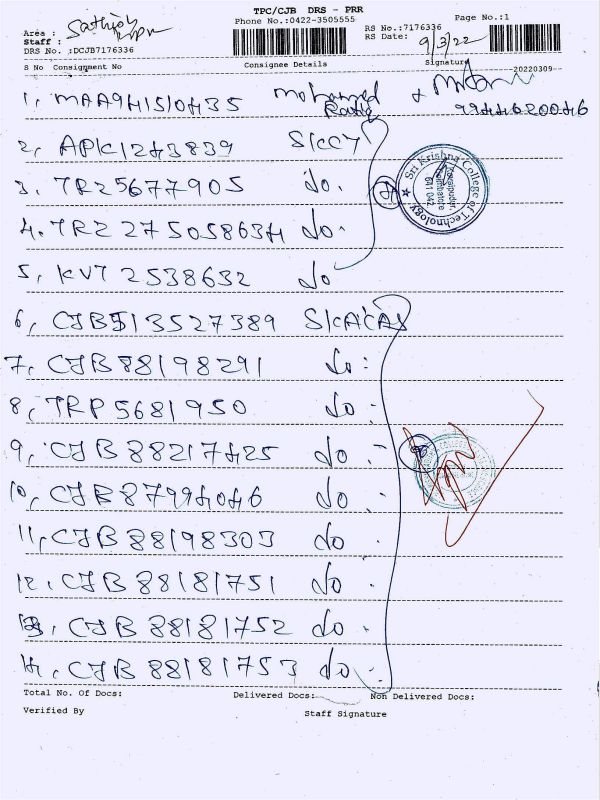 TPC/CJB DRS - PRR
Phone No.:0422-3505555
Page No.:1
Area :
Staff :
DRS No. :DCJB7176336
RS No.:7176336
RS Date: 9/3/22
S No Consignment No Consignee Details Signature
20220309--
1, MAA941510435 Mohamed Rafiq
9944620046
2, APK1243839 SKCCT
3. TRZ5677905 do.
4. TRZ 275058634 do.
5, KVT 2538632 do
Sri Krishna College of Technology
Kovaipudur,
Coimbatore
641 042
6, CJB513527389 SKACAS
7. CJB 88198291 do :
8, TRP5681950 do :
9, CJB 88217425 do :
10, CJB 87994046 do :
11, CJB 88198303 do
12. CJB 88181751 do .
13. CJB 88181752 do .
14. CJB 88181753 do .
Total No. Of Docs: Delivered Docs: Non Delivered Docs:
Verified By Staff Signature